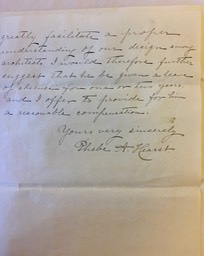 greatly facilitate a proper
understanding of our design among
architects I would therefore further
suggest that he be given a leave
of absence for one or two years
and I offer to provide for him
a reasonable compensation.
Yours very sincerely
Phebe A. Hearst